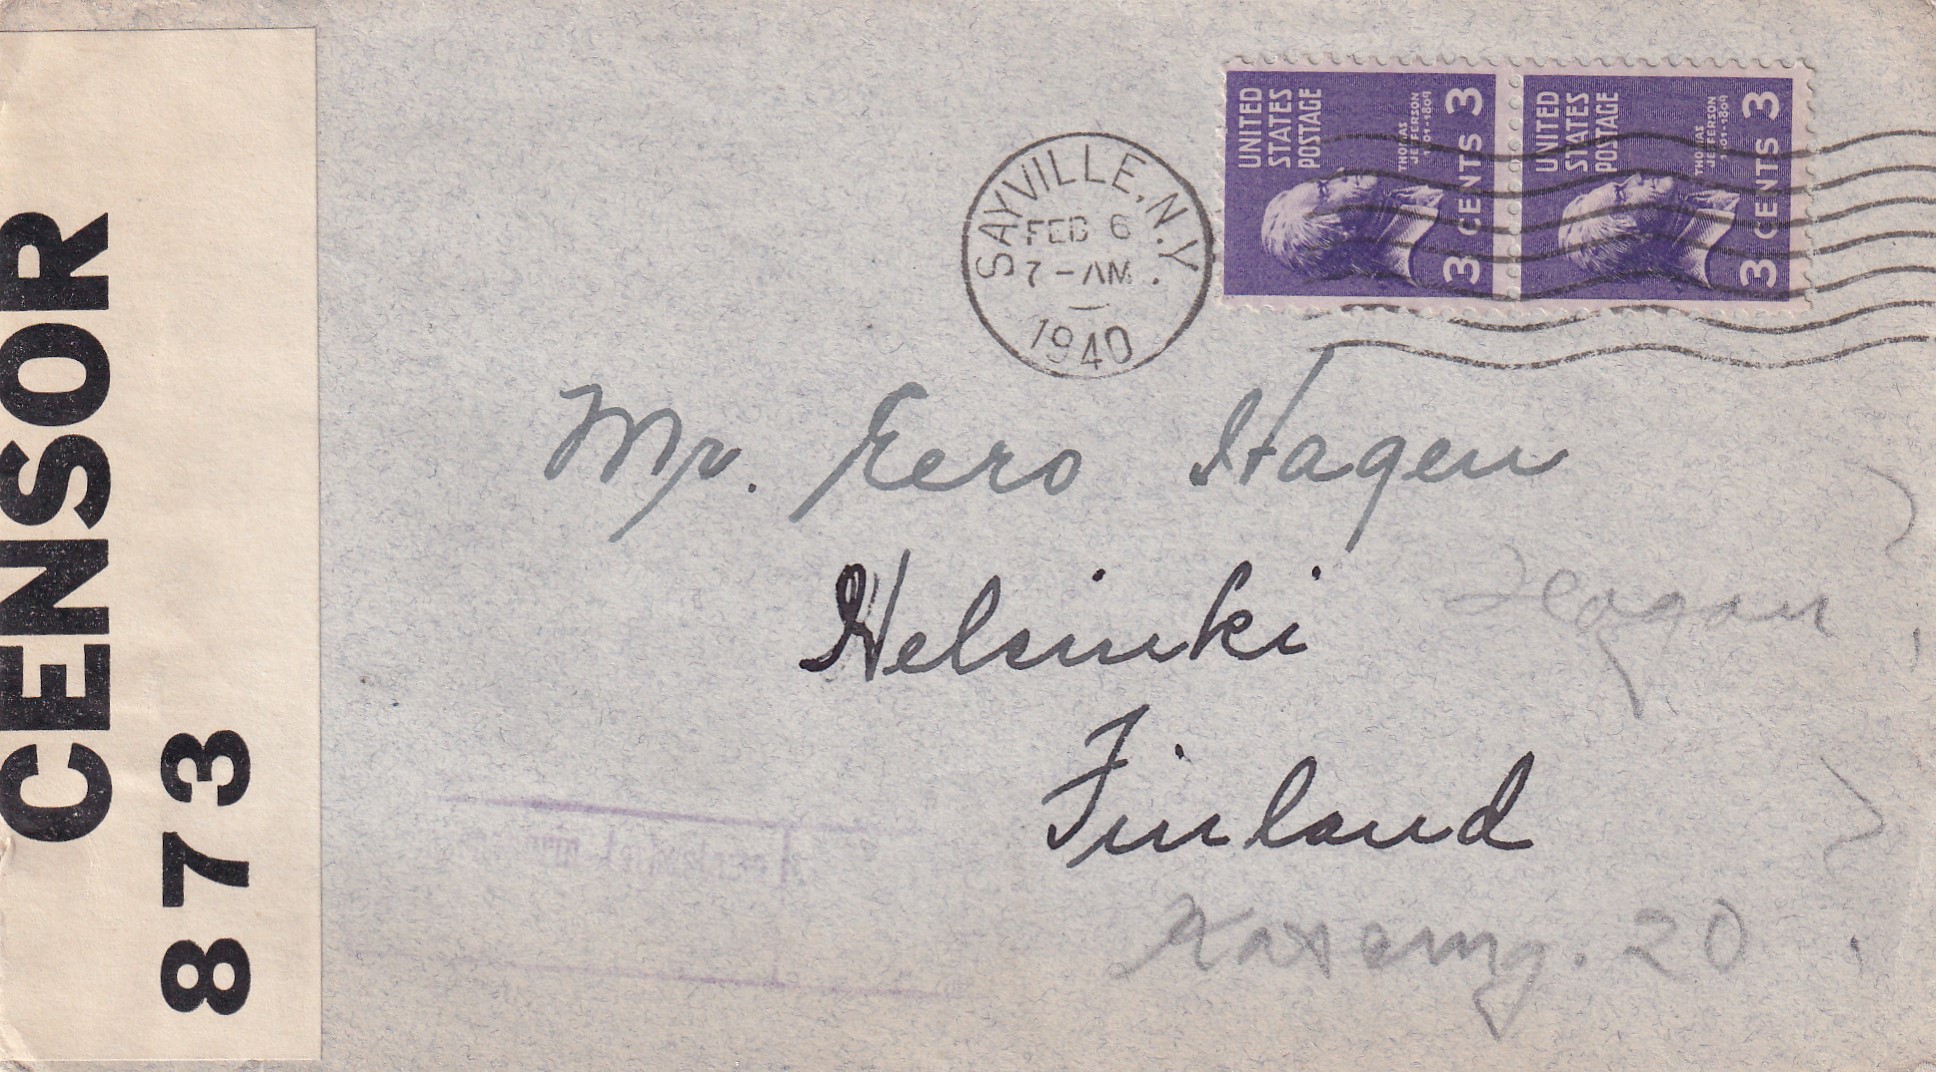 CENSOR
873
SAYVILLE, N.Y.
FEB 6
7-AM.
1940
UNITED
STATES
POSTAGE
THOMAS
JEFFERSON
1801-1809
3 CENTS 3
UNITED
STATES
POSTAGE
THOMAS
JEFFERSON
1801-1809
3 CENTS 3
Mr. Eero Hagen
Helsinki
Finland
20